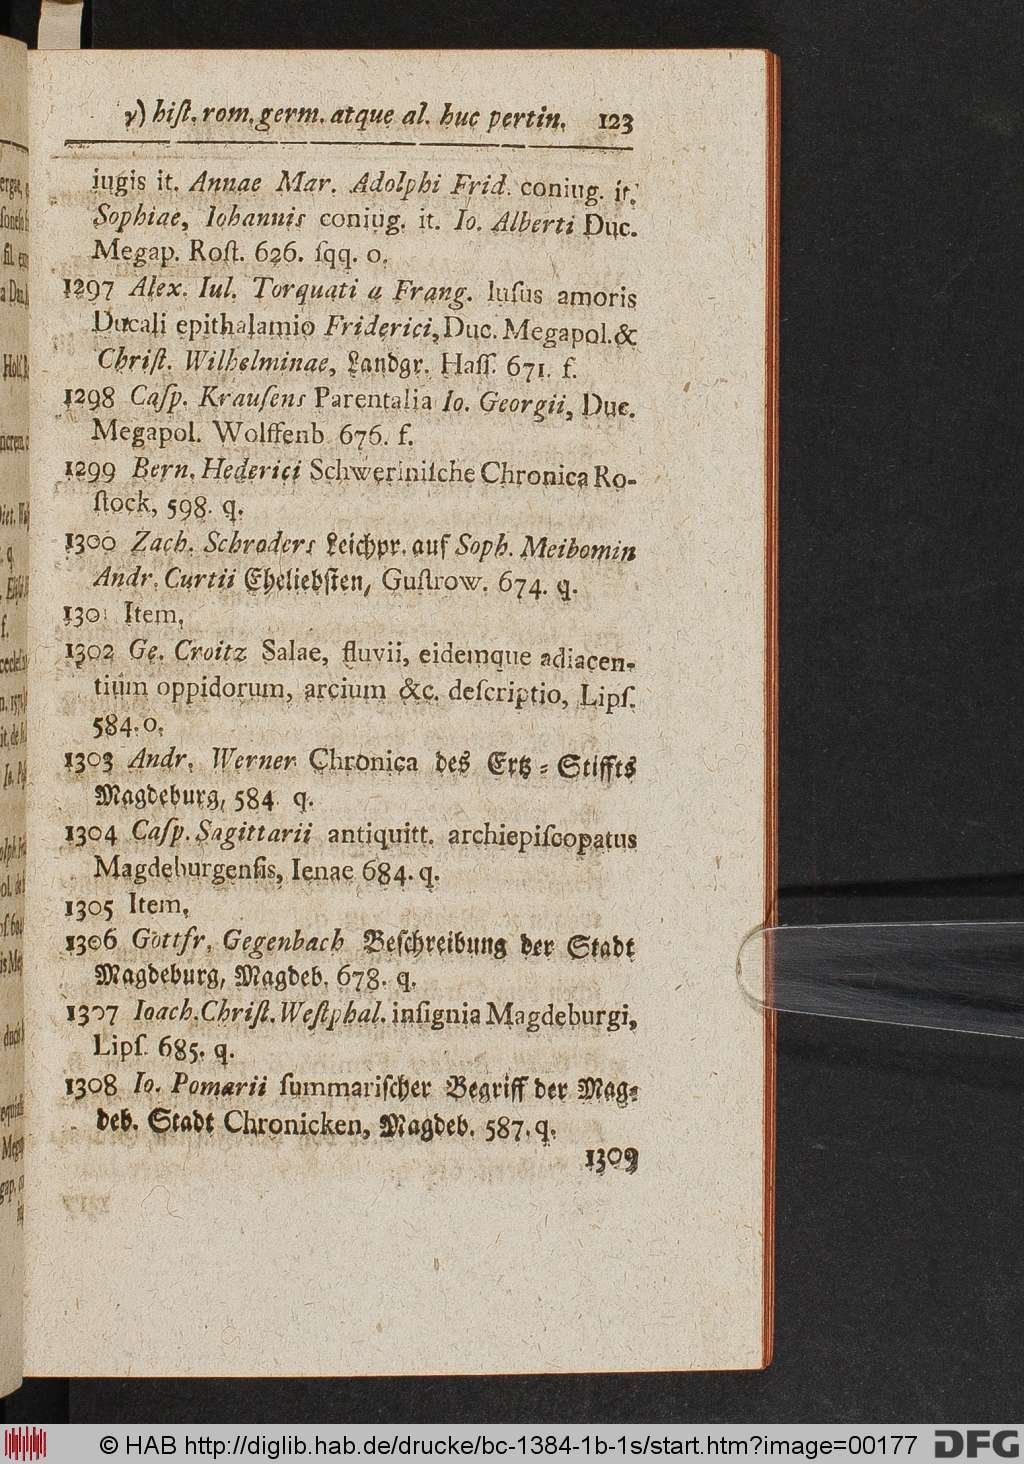 γ) hiſt. rom. germ. atque al. huc pertin. 123
iugis it. Annae Mar. Adolphi Frid. coniug. it.
Sophiae, Iohannis coniug. it. Io. Alberti Duc.
Megap. Roſt. 626. ſqq. o.
1297 Alex. Iul. Torquati a Frang. luſus amoris
Ducali epithalamio Friderici, Duc. Megapol. &
Chriſt. Wilhelminae, Landgr. Haſſ. 671. f.
1298 Caſp. Krauſens Parentalia Io. Georgii, Duc.
Megapol. Wolffenb 676. f.
1299 Bern. Hederici Schweriniſche Chronica Ro-
ſtock, 598. q.
1300 Zach. Schroders Leichpr. auf Soph. Meibomin
Andr. Curtii Eheliebſten, Guſtrow. 674. q.
1301 Item,
1302 Ge. Croitz Salae, fluvii, eidemque adiacen-
tium oppidorum, arcium &c. deſcriptio, Lipſ.
584. o.
1303 Andr. Werner Chronica des Ertz-Stiffts
Magdeburg, 584. q.
1304 Caſp. Sagittarii antiquitt. archiepiſcopatus
Magdeburgenſis, Ienae 684. q.
1305 Item,
1306 Gottfr. Gegenbach Beſchreibung der Stadt
Magdeburg, Magdeb. 678. q.
1307 Ioach. Chriſt. Weſtphal. inſignia Magdeburgi,
Lipſ. 685. q.
1308 Io. Pomarii ſummariſcher Begriff der Mag-
deb. Stadt Chronicken, Magdeb. 587. q.
1309
© HAB http://diglib.hab.de/drucke/bc-1384-1b-1s/start.htm?image=00177 DFG